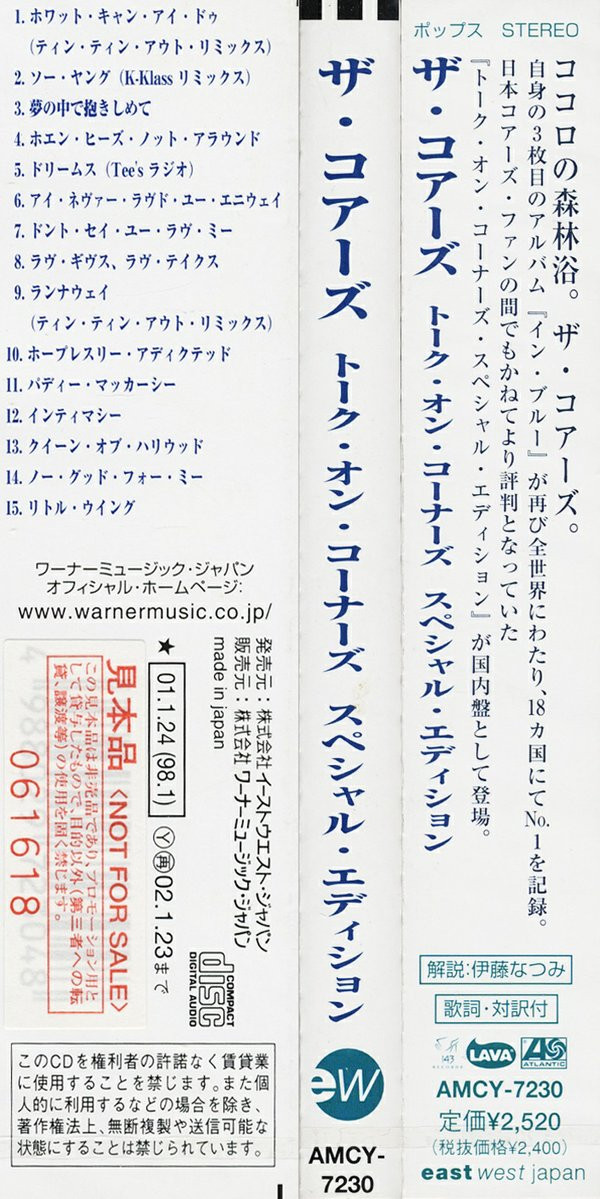 ポップス STEREO
ココロの森林浴。ザ・コアーズ。
自身の3枚目のアルバム『イン・ブルー』が再び全世界にわたり、18カ国にてNo.1を記録。
日本コアーズ・ファンの間でもかねてより評判となっていた
『トーク・オン・コーナーズ・スペシャル・エディション』が国内盤として登場。
ザ・コアーズ トーク・オン・コーナーズ スペシャル・エディション
解説:伊藤なつみ
歌詞・対訳付
143
RECORDS
LAVA
ATLANTIC
AMCY-7230
定価¥2,520
(税抜価格¥2,400)
east west japan
ザ・コアーズ トーク・オン・コーナーズ スペシャル・エディション
ew
AMCY-
7230
1. ホワット・キャン・アイ・ドゥ
(ティン・ティン・アウト・リミックス)
2. ソー・ヤング (K-Klass リミックス)
3. 夢の中で抱きしめて
4. ホエン・ヒーズ・ノット・アラウンド
5. ドリームス (Tee's ラジオ)
6. アイ・ネヴァー・ラヴド・ユー・エニウェイ
7. ドント・セイ・ユー・ラヴ・ミー
8. ラヴ・ギヴス、ラヴ・テイクス
9. ランナウェイ
(ティン・ティン・アウト・リミックス)
10. ホープレスリー・アディクテッド
11. パディー・マッカーシー
12. インティマシー
13. クイーン・オブ・ハリウッド
14. ノー・グッド・フォー・ミー
15. リトル・ウイング
ワーナーミュージック・ジャパン
オフィシャル・ホームページ:
www.warnermusic.co.jp/
発売元:株式会社イーストウエスト・ジャパン
販売元:株式会社ワーナーミュージック・ジャパン
made in japan
★ 01.1.24(98.1) Ⓨ㊢02.1.23まで
COMPACT
disc
DIGITAL AUDIO
見本品〈NOT FOR SALE〉
この見本品は非売品であり、プロモーション用と
して貸与したもので、目的以外(第三者への転
貸、譲渡等)の使用を固く禁じます。
061618
このCDを権利者の許諾なく賃貸業
に使用することを禁じます。また個
人的に利用するなどの場合を除き、
著作権法上、無断複製や送信可能な
状態にすることは禁じられています。